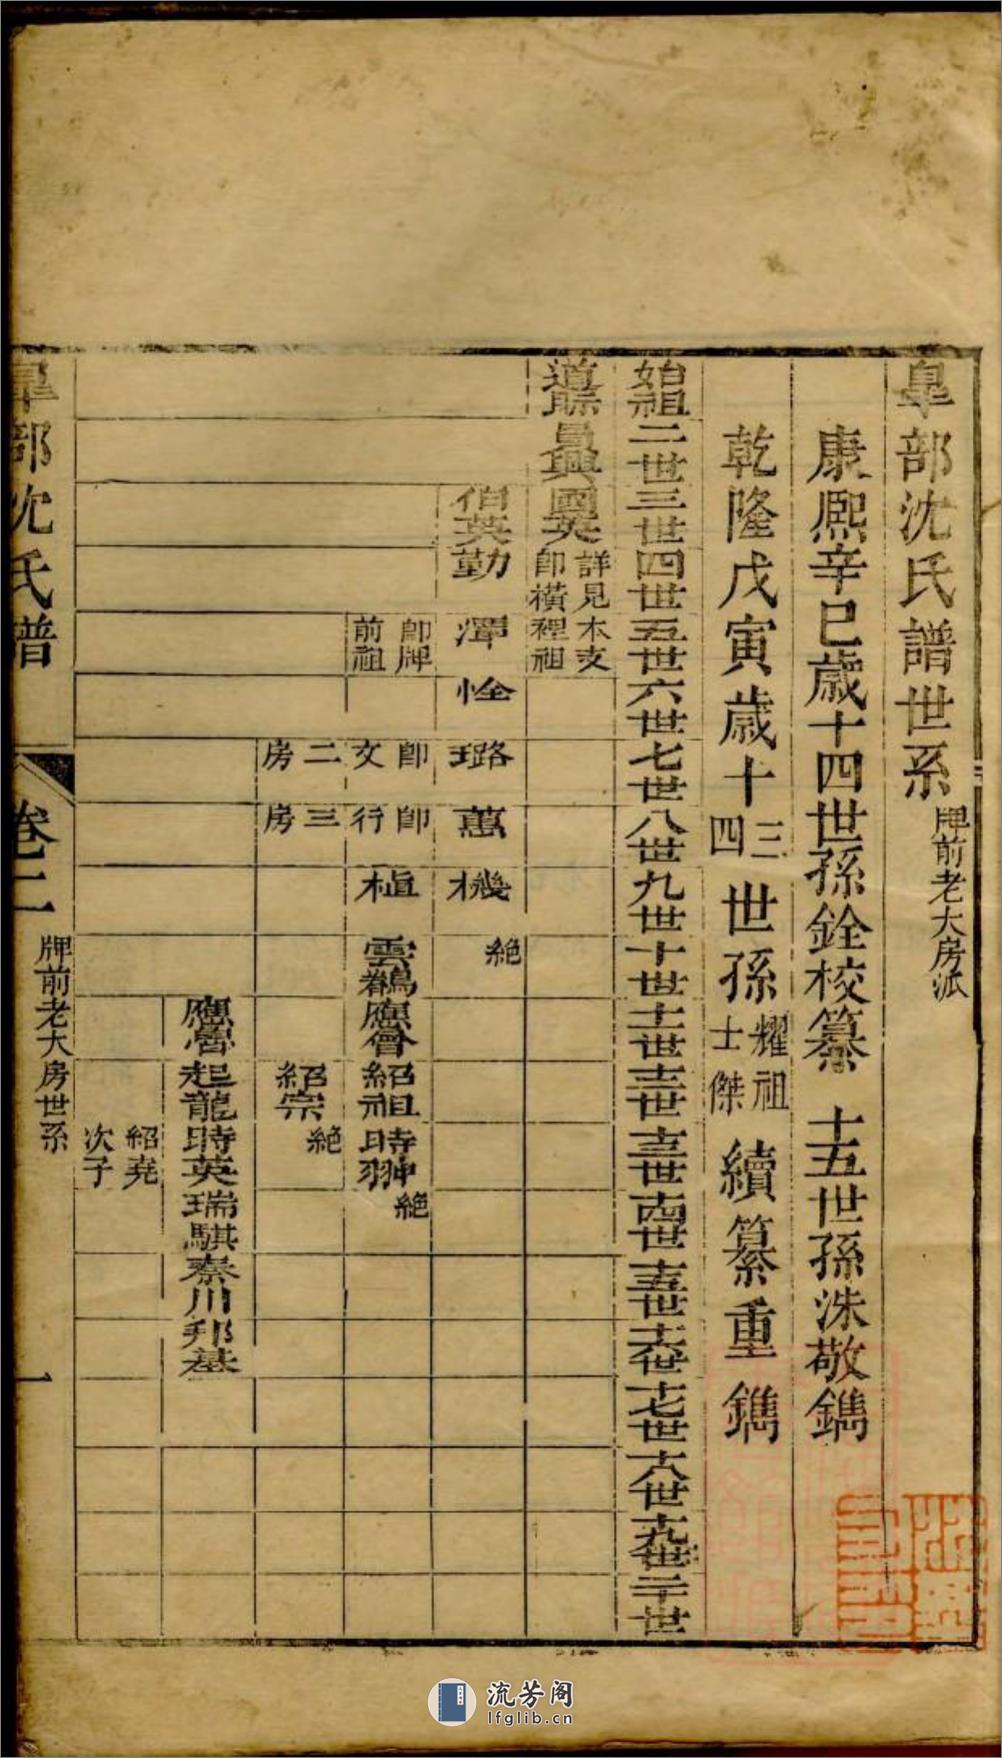 皐部沈氏譜世系 牌前老大房派
康熙辛巳歲十四世孫銓校纂 十五世孫洙敬鐫
乾隆戊寅歲十三四世孫耀祖士傑續纂重鐫
始祖 二世 三世 四世 五世 六世 七世 八世 九世 十世 十一世 十二世 十三世 十四世 十五世 十六世 十七世 十八世 十九世 二十世
道 昌興 國英 詳見本支即橫裡祖
伯英 勤 澤 恮 璐 蕙 機 絕
即牌前祖
即文二房
即行三房
植 雲鵠 應會 紹祖 時翀 絕
紹宗 絕
應魯 起龍 時英 瑞騏 秦川 邦基
紹堯次子
皐部沈氏譜 卷二 牌前老大房世系 一
流芳阁
lfglib.cn